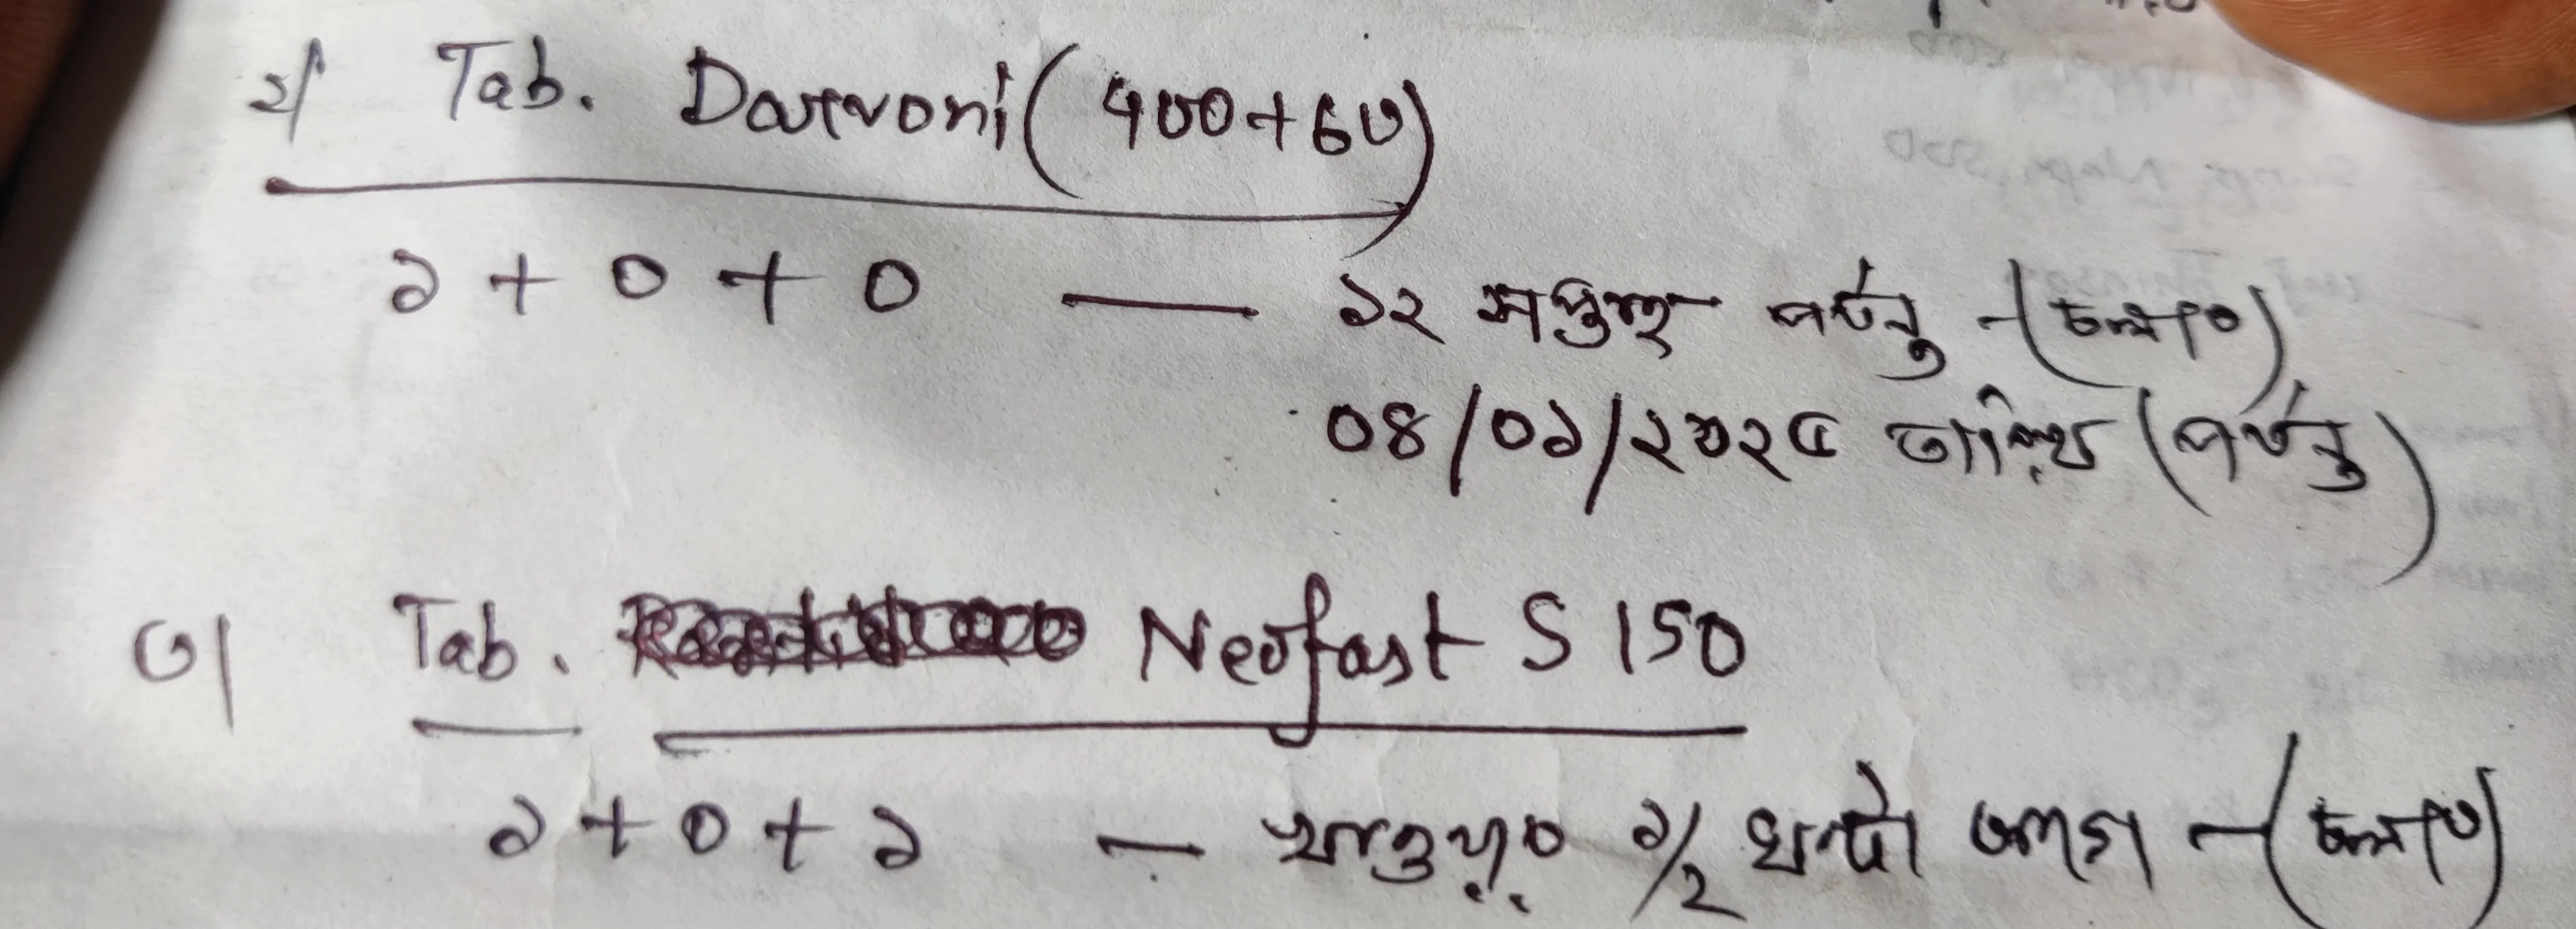 ২/ Tab. Darvoni (400+60)
১ + ০ + ০ — ১২ সপ্তাহ পর্যন্ত - (চলবে)
০৪/০১/২০২৫ তারিখ (পর্যন্ত)
৩/ Tab. Neofast S 150
১ + ০ + ১ — খাওয়ার ১/২ ঘন্টা আগে - (চলবে)